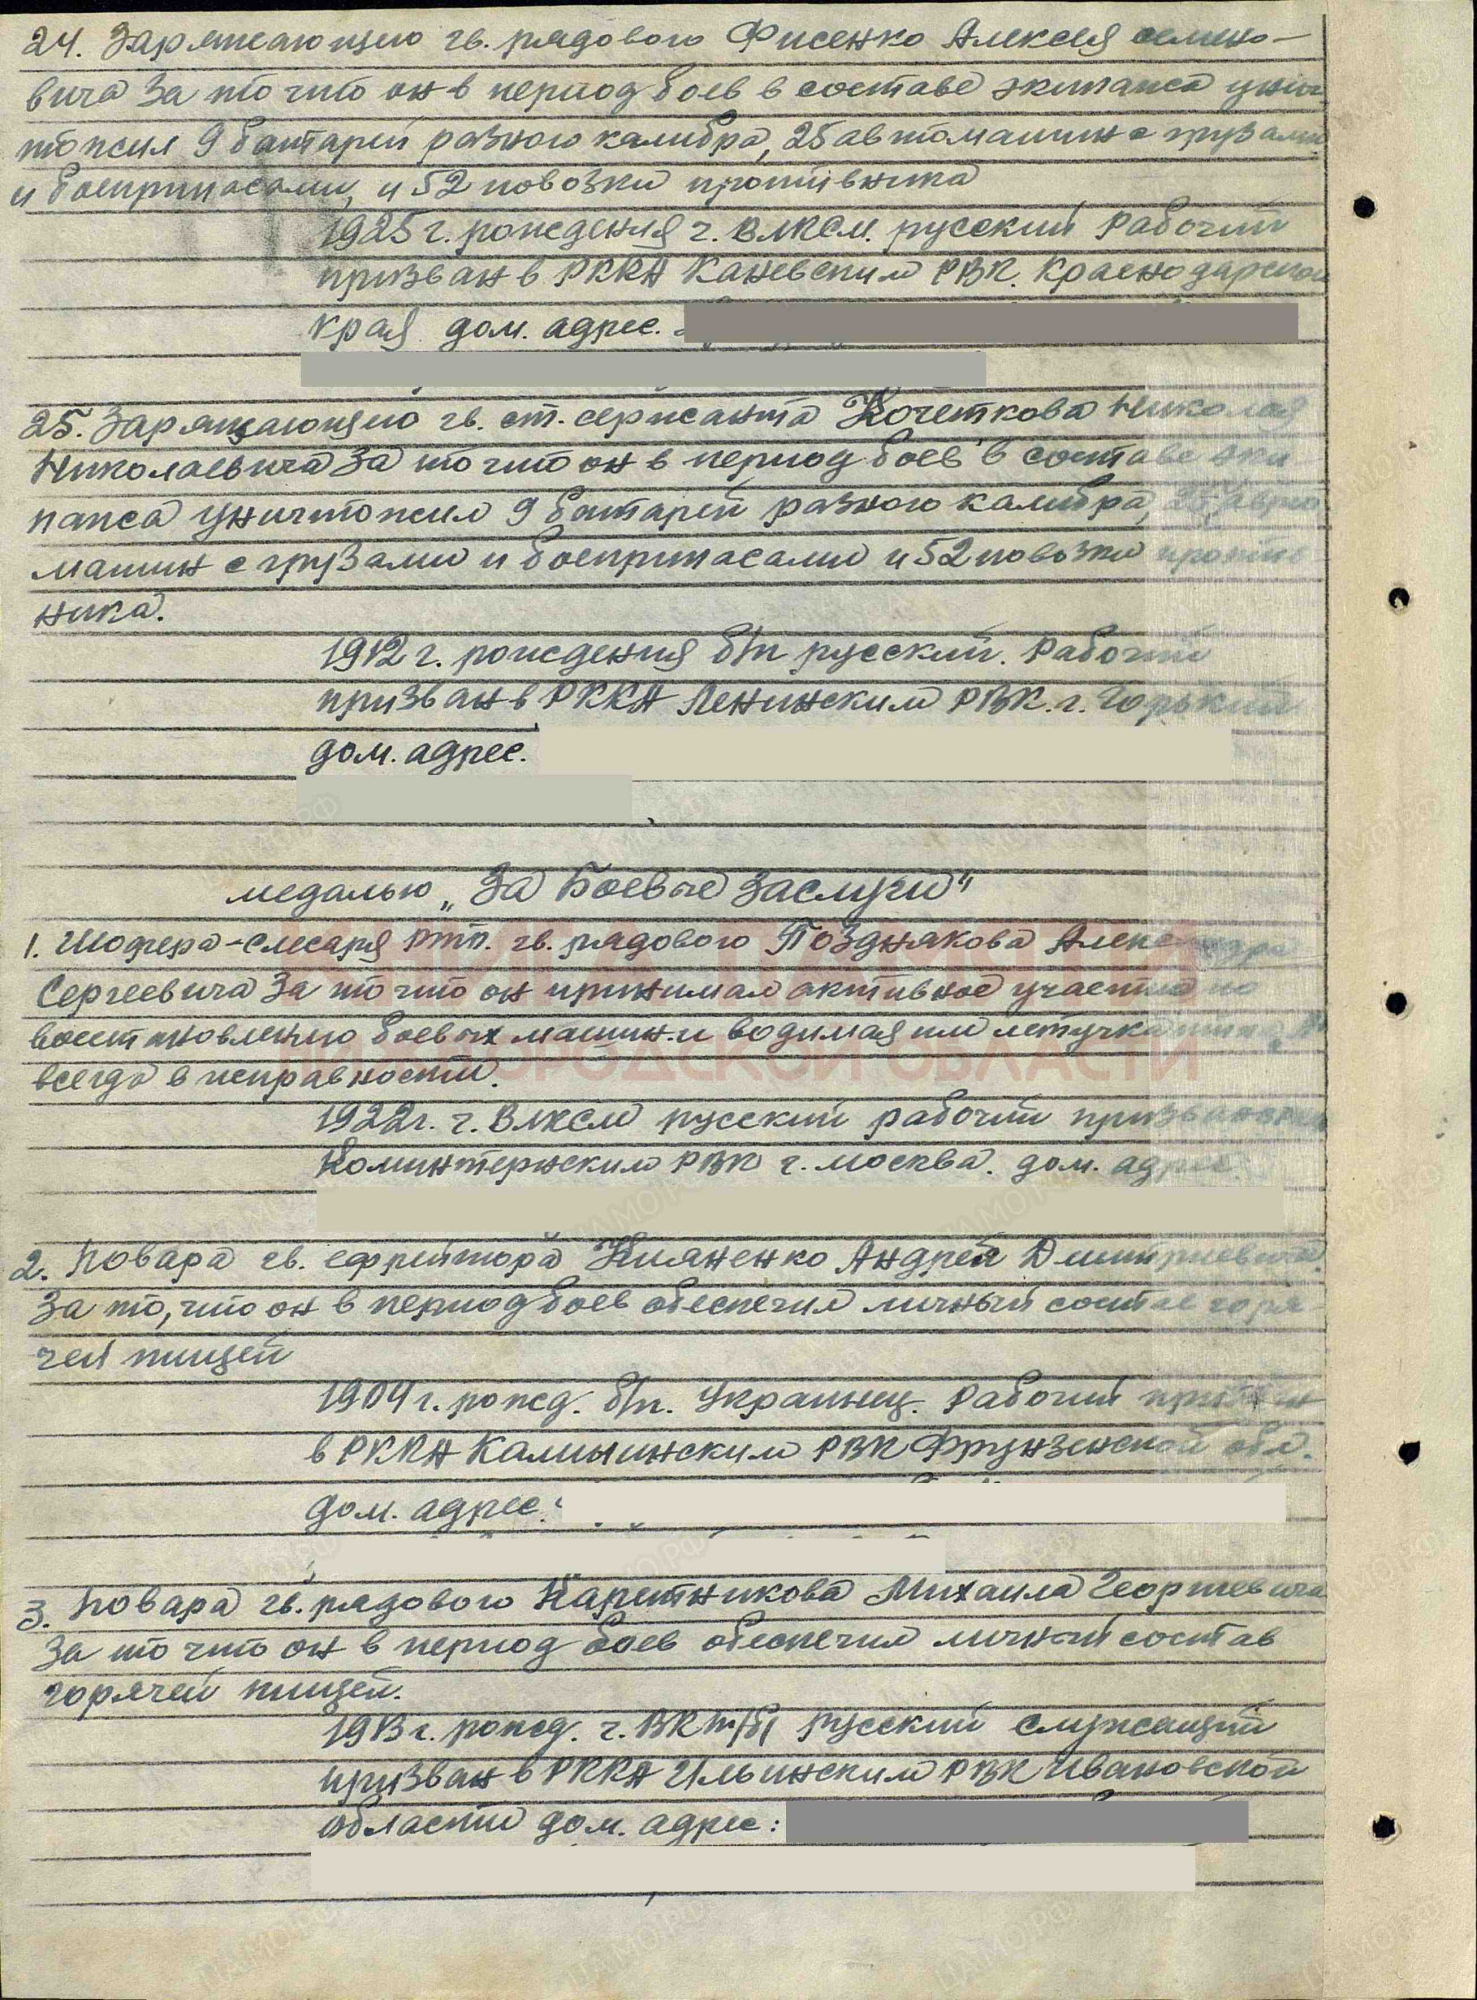 24. Заряжающего гв. рядового Фисенко Алексея семено-
вича За то что он в период боев в составе экипажа унич
тожил 9 батарей разного калибра, 25 автомашин с грузами
и боеприпасами, и 52 повозки противника
1925 г. рождения ч. ВЛКСМ. русский Рабочий
призван в РККА Каневским РВК. Краснодарского
края дом. адрес.
25. Заряжающего гв. ст. сержанта Кочеткова Николая
Николаевича За то что он в период боев в составе эки
пажа уничтожил 9 батарей разного калибра, 25 авто
машин с грузами и боеприпасами и 52 повозки против
ника.
1912 г. рождения б/п русский. Рабочий
призван в РККА Ленинским РВК. г. Горький
дом. адрес.
медалью „За Боевые заслуги"
1. Шофера-слесаря РТП. гв. рядового Позднякова Александра
Сергеевича За то что он принимал активное участие по
восстановлению боевых машин. и водимая им летучка типа
всегда в исправности.
1922г. ч. ВЛКСМ русский рабочий призван
Коминтернским РВК г. Москва. дом. адрес
2. Повара гв. ефрейтора Кияненко Андрея Дмитриевича.
За то, что он в период боев обеспечил личный состав горя-
чей пищей
1904 г. рожд. б/п. Украинец. Рабочий призван
в РККА Калининским РВК Фрунзенской обл.
дом. адрес:
3. Повара гв. рядового Каретникова Михаила Георгиевича
За то что он в период боев обеспечил личный состав
горячей пищей.
1913 г. рожд. ч. ВКП/б/ Русский служащий
призван в РККА Ильинским РВК Ивановской
области дом. адрес:
КНИГА ПАМЯТИ
НИЖЕГОРОДСКОЙ ОБЛАСТИ